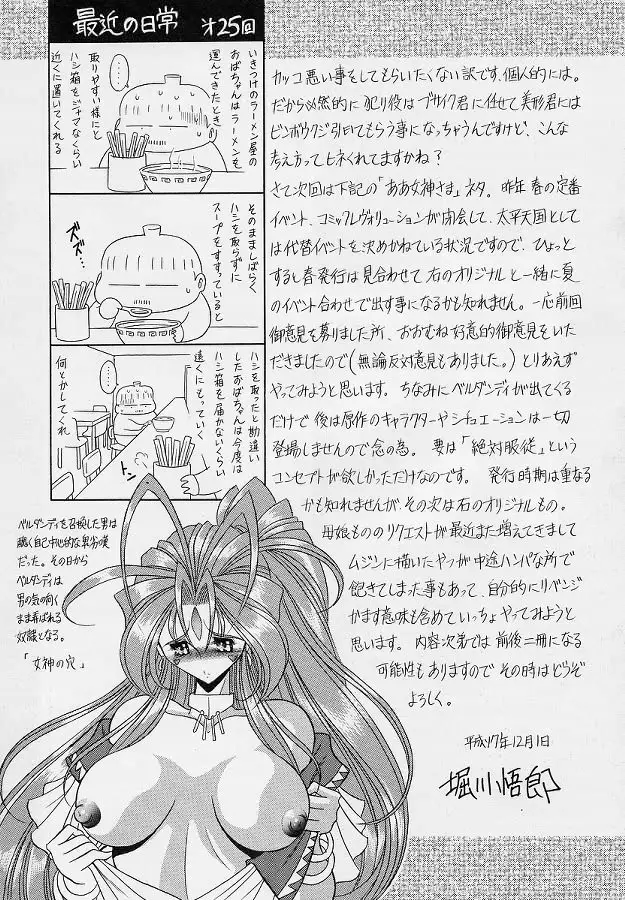 最近の日常 才25回
いきつけのラーメン屋の
おばちゃんはラーメンを
運んできたとき
取りやすい様にと
ハシ箱をジャマなくらい
近くに置いてくれる
そのまましばらく
ハシを取らずに
スープをすすっていると
ズズ…
ハシを取ったと勘違い
したおばちゃんは今度は
ハシ箱を届かないくらい
遠くにもっていく
何とかしてくれ
トン
カッコ悪い事をしてもらいたくない訳です、個人的には。
だから必然的に犯り役はブサイク君に任せて美形君には
ビンボウクジ引いてもらう事になっちゃうんですけど、こんな
考え方ってヒネくれてますかね?
さて次回は下記の「ああ女神さま」ネタ。昨年春の定番
イベント、コミックレヴォリューションが閉会して、太平天国として
は代替イベントを決めかねている状況ですので、ひょっと
するし春発行は見合わせて右のオリジナルと一緒に夏
のイベント合わせで出す事になるかも知れません。一応前回
御意見を募りました所、おおむね好意的御意見をいた
だきましたので(無論反対意見もありました。)とりあえず
やってみようと思います。ちなみにベルダンディが出てくる
だけで後は原作のキャラクターやシチュエーションは一切
登場しませんので念の為。要は「絶対服従」という
コンセプトが欲しかっただけなのです。発行時期は重なる
かも知れませんが、その次は右のオリジナルもの。
母娘もののリクエストが最近また増えてきまして
ムジンに描いたやつが中途ハンパな所で
飽きてしまった事もあって、自分的にリベンジ
かます意味も含めていっちょやってみようと
思います。内容次第では前後二冊になる
可能性もありますのでその時はどうぞ
よろしく。
平成17年12月1日
堀川悟郎
ベルダンディを召喚した男は
醜く自己中心的な男
だった。その日から
ベルダンディは
男の気の向く
まま弄ばれる
奴隷となる。
「女神の穴」